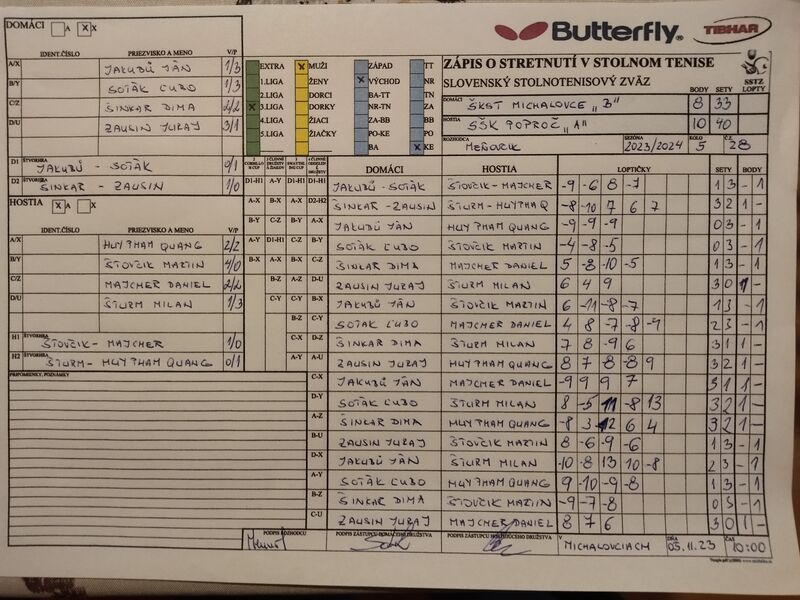 DOMÁCI A X X
IDENT.ČÍSLO PRIEZVISKO A MENO V/P
A/X JAKUBŮ JÁN 1/3
B/Y SOTÁK ĽUBO 1/3
C/Z ŠINKAR DIMA 2/2
D/U ZAUSIN JURAJ 3/1
D1 ŠTVORHRA JAKUBŮ - SOTÁK 0/1
D2 ŠTVORHRA ŠINKAR - ZAUSIN 1/0
HOSTIA X A X
IDENT.ČÍSLO PRIEZVISKO A MENO V/P
A/X HUY PHAM QUANG 2/2
B/Y ŠTOVČIK MARTIN 4/0
C/Z MAJCHER DANIEL 2/2
D/U ŠTURM MILAN 1/3
H1 ŠTVORHRA ŠTOVČIK - MAJCHER 1/0
H2 ŠTVORHRA ŠTURM - HUY PHAM QUANG 0/1
PRIPOMIENKY, POZNÁMKY
EXTRA
1.LIGA
2.LIGA
X 3.LIGA
4.LIGA
5.LIGA
X MUŽI
ŽENY
DORCI
DORKY
ŽIACI
ŽIAČKY
ZÁPAD
X VÝCHOD
BA-TT
NR-TN
ZA-BB
PO-KE
BA
TT
NR
TN
ZA
BB
PO
X KE
Butterfly
TIBHAR
ZÁPIS O STRETNUTÍ V STOLNOM TENISE
SLOVENSKÝ STOLNOTENISOVÝ ZVÄZ
SSTZ
BODY SETY LOPTY
DOMÁCI ŠKST MICHALOVCE "B" 8 33
HOSTIA SŠK POPROČ "A" 10 40
ROZHODCA MEŇOVČIK SEZÓNA 2023/2024 KOLO 5 Č.Z. 28
DOMÁCI HOSTIA LOPTIČKY SETY BODY
D1-H1 A-Y D1-H1 D1-H1 JAKUBŮ - SOTÁK ŠTOVČIK - MAJCHER -9 -6 8 -7 1 3 - 1
A-X B-X A-X D2-H2 ŠINKAR - ZAUSIN ŠTURM - HUY PHAM Q -8 -10 7 6 7 3 2 1 -
B-Y C-Z B-Y A-X JAKUBŮ JÁN HUY PHAM QUANG -9 -9 -9 0 3 - 1
A-Y D1-H1 C-Z B-Y SOTÁK ĽUBO ŠTOVČIK MARTIN -4 -8 -5 0 3 - 1
B-X A-X B-X C-Z ŠINKAR DIMA MAJCHER DANIEL 5 -8 -10 -5 1 3 - 1
B-Z A-Z D-U ZAUSIN JURAJ ŠTURM MILAN 6 4 9 3 0 1 -
C-Y C-Y B-X JAKUBŮ JÁN ŠTOVČIK MARTIN 6 -11 -8 -7 1 3 - 1
B-Z C-Y SOTÁK ĽUBO MAJCHER DANIEL 4 8 -7 -8 -9 2 3 - 1
C-X D-Z ŠINKAR DIMA ŠTURM MILAN 7 8 -9 6 3 1 1 -
A-Y A-U ZAUSIN JURAJ HUY PHAM QUANG 8 7 -8 -8 9 3 2 1 -
C-X JAKUBŮ JÁN MAJCHER DANIEL -9 9 9 7 3 1 1 -
D-Y SOTÁK ĽUBO ŠTURM MILAN 8 -5 11 -8 13 3 2 1 -
A-Z ŠINKAR DIMA HUY PHAM QUANG -8 3 -12 6 4 3 2 1 -
B-U ZAUSIN JURAJ ŠTOVČIK MARTIN 8 -6 -9 -6 1 3 - 1
D-X JAKUBŮ JÁN ŠTURM MILAN -10 -8 13 10 -8 2 3 - 1
A-Y SOTÁK ĽUBO HUY PHAM QUANG 9 -10 -9 -8 1 3 - 1
B-Z ŠINKAR DIMA ŠTOVČIK MARTIN -9 -7 -8 0 3 - 1
C-U ZAUSIN JURAJ MAJCHER DANIEL 8 7 6 3 0 1 -
PODPIS ROZHODCU PODPIS ZÁSTUPCU DOMÁCEHO DRUŽSTVA PODPIS ZÁSTUPCU HOSŤUJÚCEHO DRUŽSTVA V MICHALOVCIACH DŇA 05.11.23 ČAS 10:00